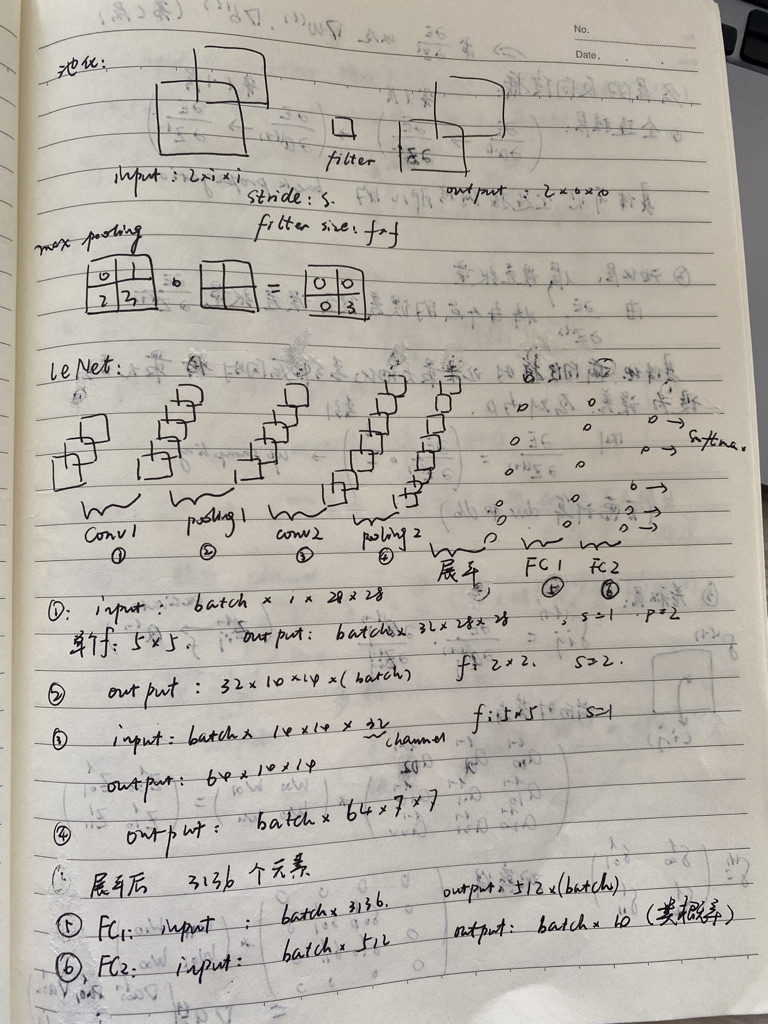 No.
Date.
池化:
filter
input: 2×i×i
output: 2×o×o
stride: s.
filter size: f×f
max pooling
0 1
2 3
=
0 0
0 3
leNet:
softma.
conv1 pooling1 conv2 pooling2 展平 FC1 FC2
① ② ③ ④ ⑤ ⑥
①: input: batch × 1 × 28 × 28
单个f: 5×5. output: batch × 32 × 28 × 28, s=1 p=2
② output: 32×14×14×(batch) f: 2×2. s=2.
③ input: batch × 14×14 × 32 channel f: 5×5 s=1
output: 64×14×14
④ output: batch × 64×7×7
展平后 3136 个元素
⑤ FC1: input: batch × 3136. output: 512×(batch)
⑥, FC2: input: batch × 512 output: batch × 10 (类概率)